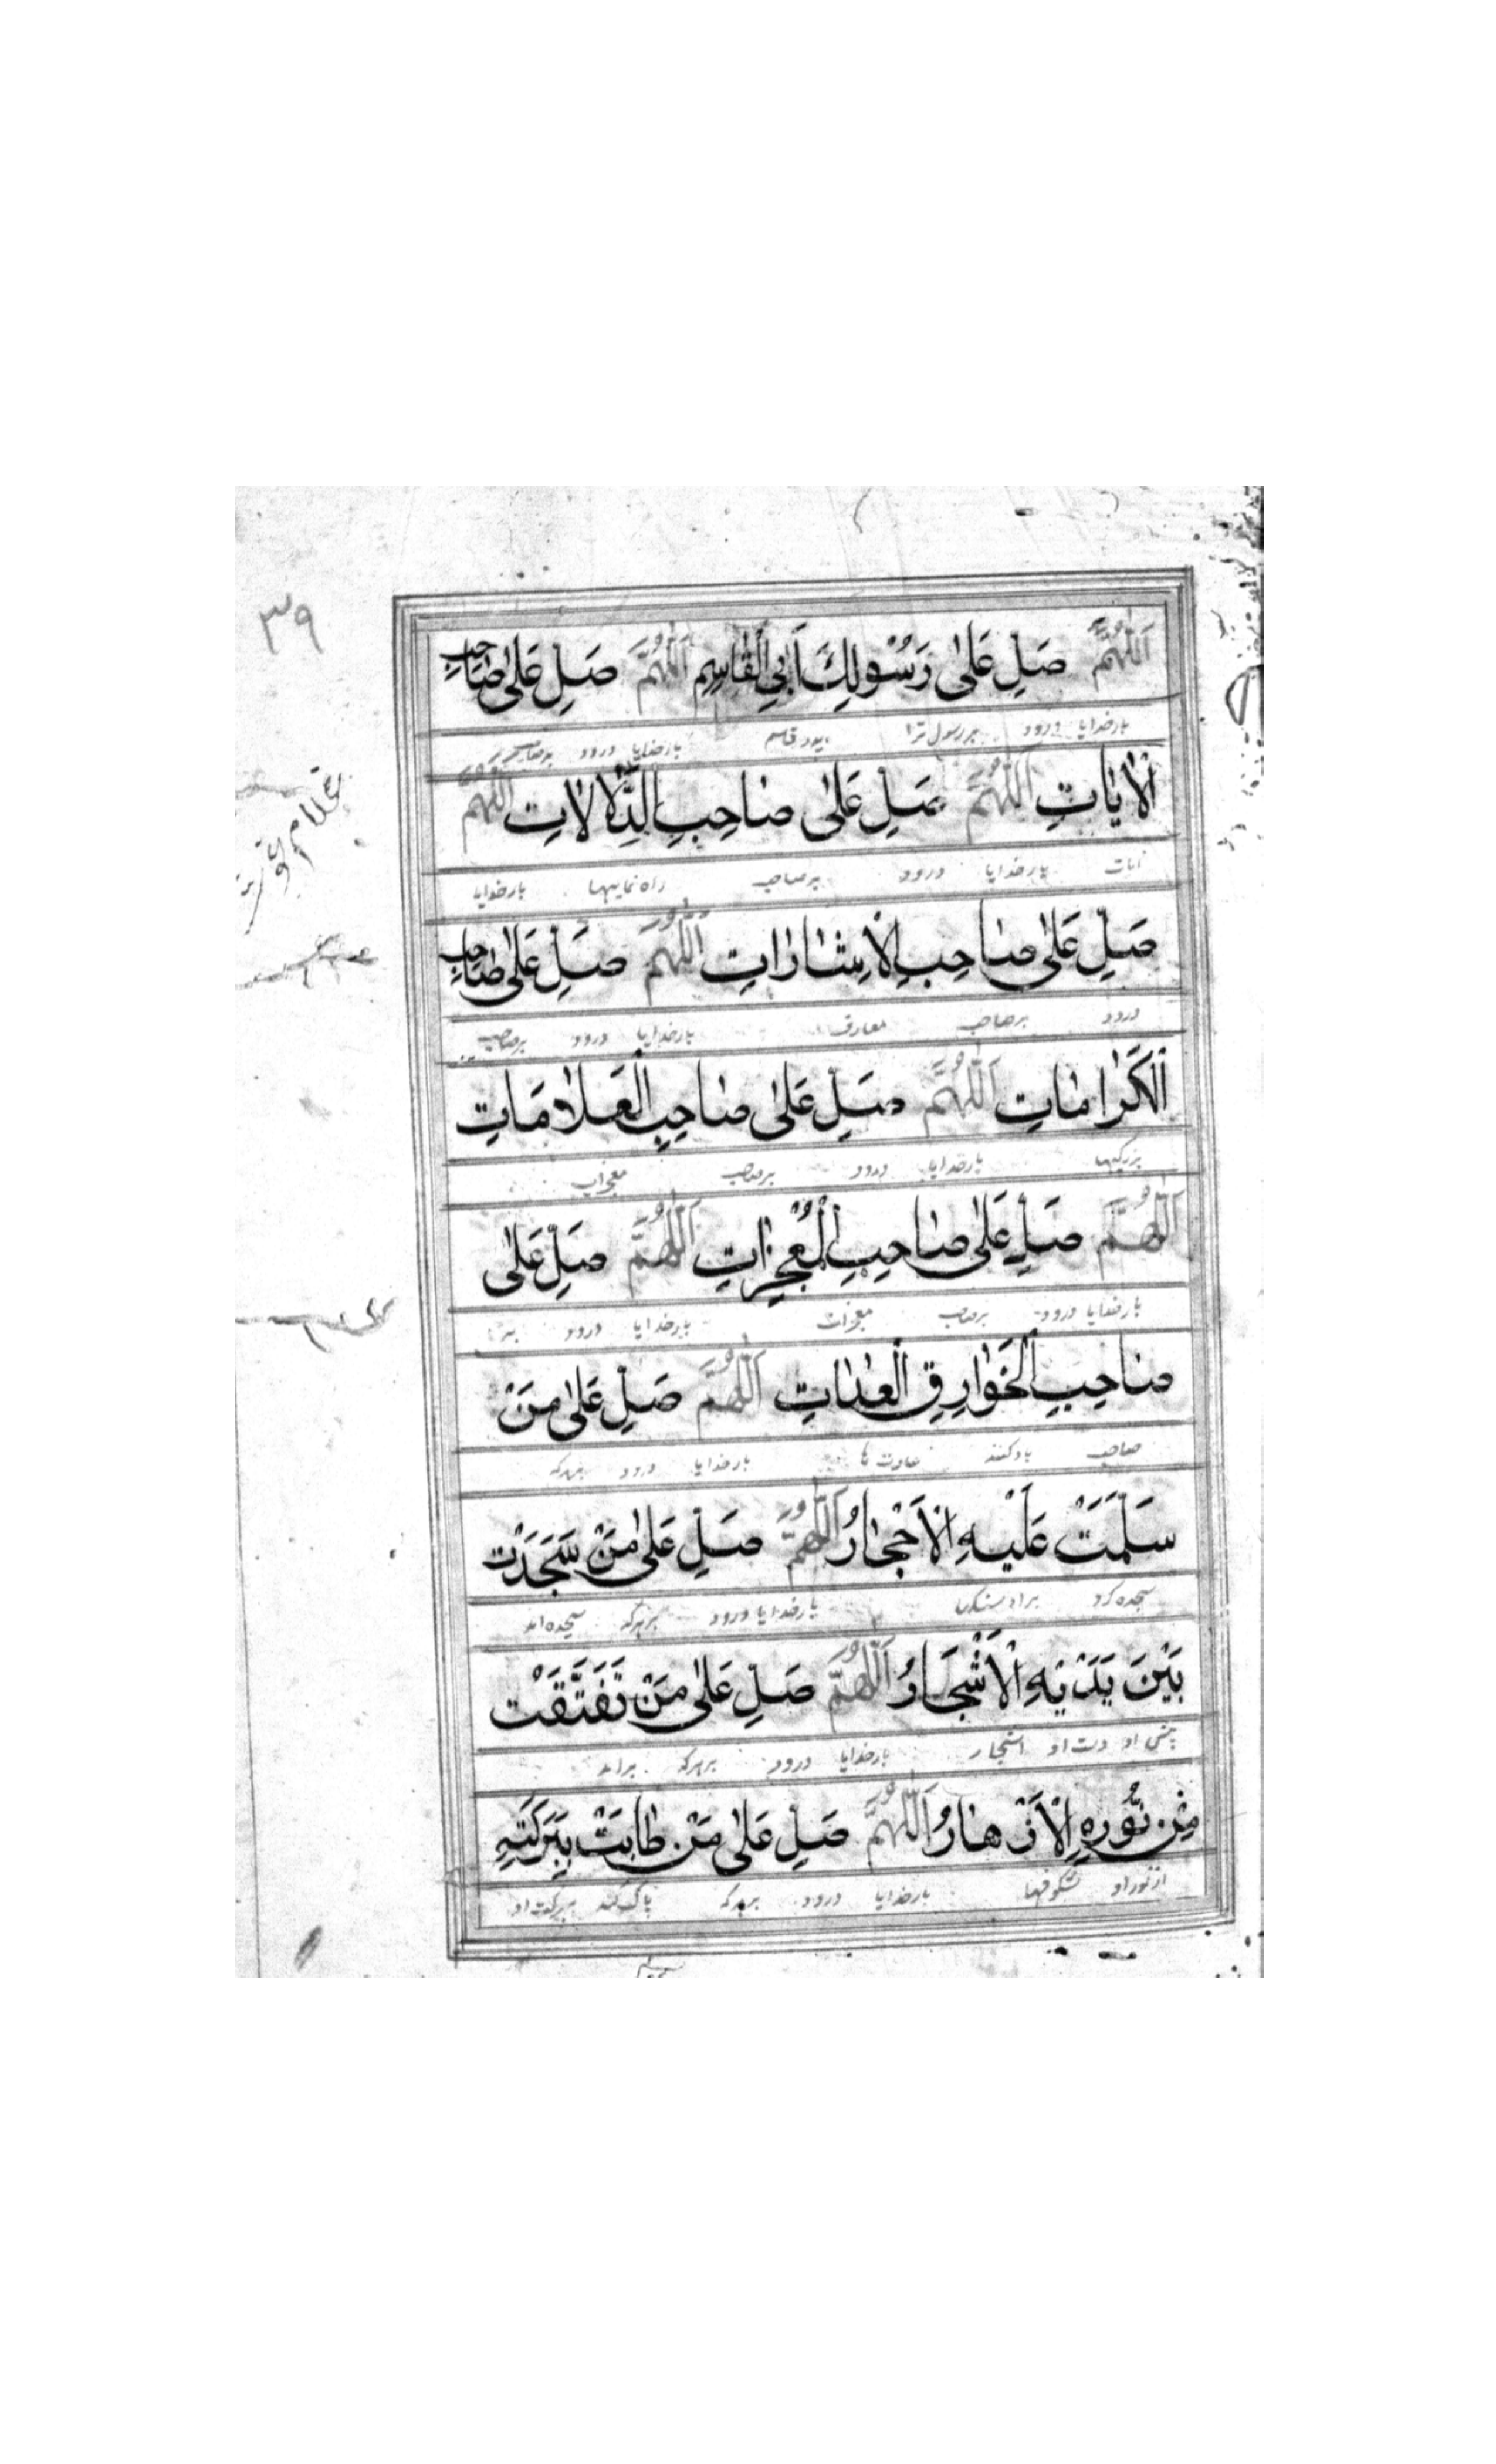 ٣٩
اَللّٰهُمَّ صَلِّ عَلٰى رَسُوْلِكَ اَبِي الْقَاسِمِ اَللّٰهُمَّ صَلِّ عَلٰى صَاحِبِ
بارخدایا درود بر رسول ترا قاسم بارخدایا درود بر صاحب
الْاٰيَاتِ اَللّٰهُمَّ صَلِّ عَلٰى صَاحِبِ الدَّلَالَاتِ اَللّٰهُمَّ
آیات بارخدایا درود بر صاحب راه نماییها بارخدایا
صَلِّ عَلٰى صَاحِبِ الْاِشَارَاتِ اَللّٰهُمَّ صَلِّ عَلٰى صَاحِبِ
درود بر صاحب معارف بارخدایا درود بر صاحب
الْكَرَامَاتِ اَللّٰهُمَّ صَلِّ عَلٰى صَاحِبِ الْعَلَامَاتِ
بزرگیها بارخدایا درود بر صاحب
اَللّٰهُمَّ صَلِّ عَلٰى صَاحِبِ الْمُعْجِزَاتِ اَللّٰهُمَّ صَلِّ عَلٰى
بارخدایا درود بر صاحب معجزات بارخدایا درود بر
صَاحِبِ الْخَوَارِقِ الْعَادَاتِ اَللّٰهُمَّ صَلِّ عَلٰى مَنْ
صاحب عادت ها بارخدایا درود بهرکه
سَلَّمَتْ عَلَيْهِ الْاَحْجَارُ اَللّٰهُمَّ صَلِّ عَلٰى مَنْ سَجَدَتْ
سجده کرد بر او سنگها بارخدایا درود بر هرکه سجده
بَيْنَ يَدَيْهِ الْاَشْجَارُ اَللّٰهُمَّ صَلِّ عَلٰى مَنْ تَفَتَّقَتْ
دست او اشجار بارخدایا درود بر هرکه
مِنْ نُوْرِهِ الْاَزْهَارُ اَللّٰهُمَّ صَلِّ عَلٰى مَنْ طَابَتْ بِبَرَكَتِهِ
از نور او شکوفها بارخدایا درود بر هرکه پاک کند ببرکت او